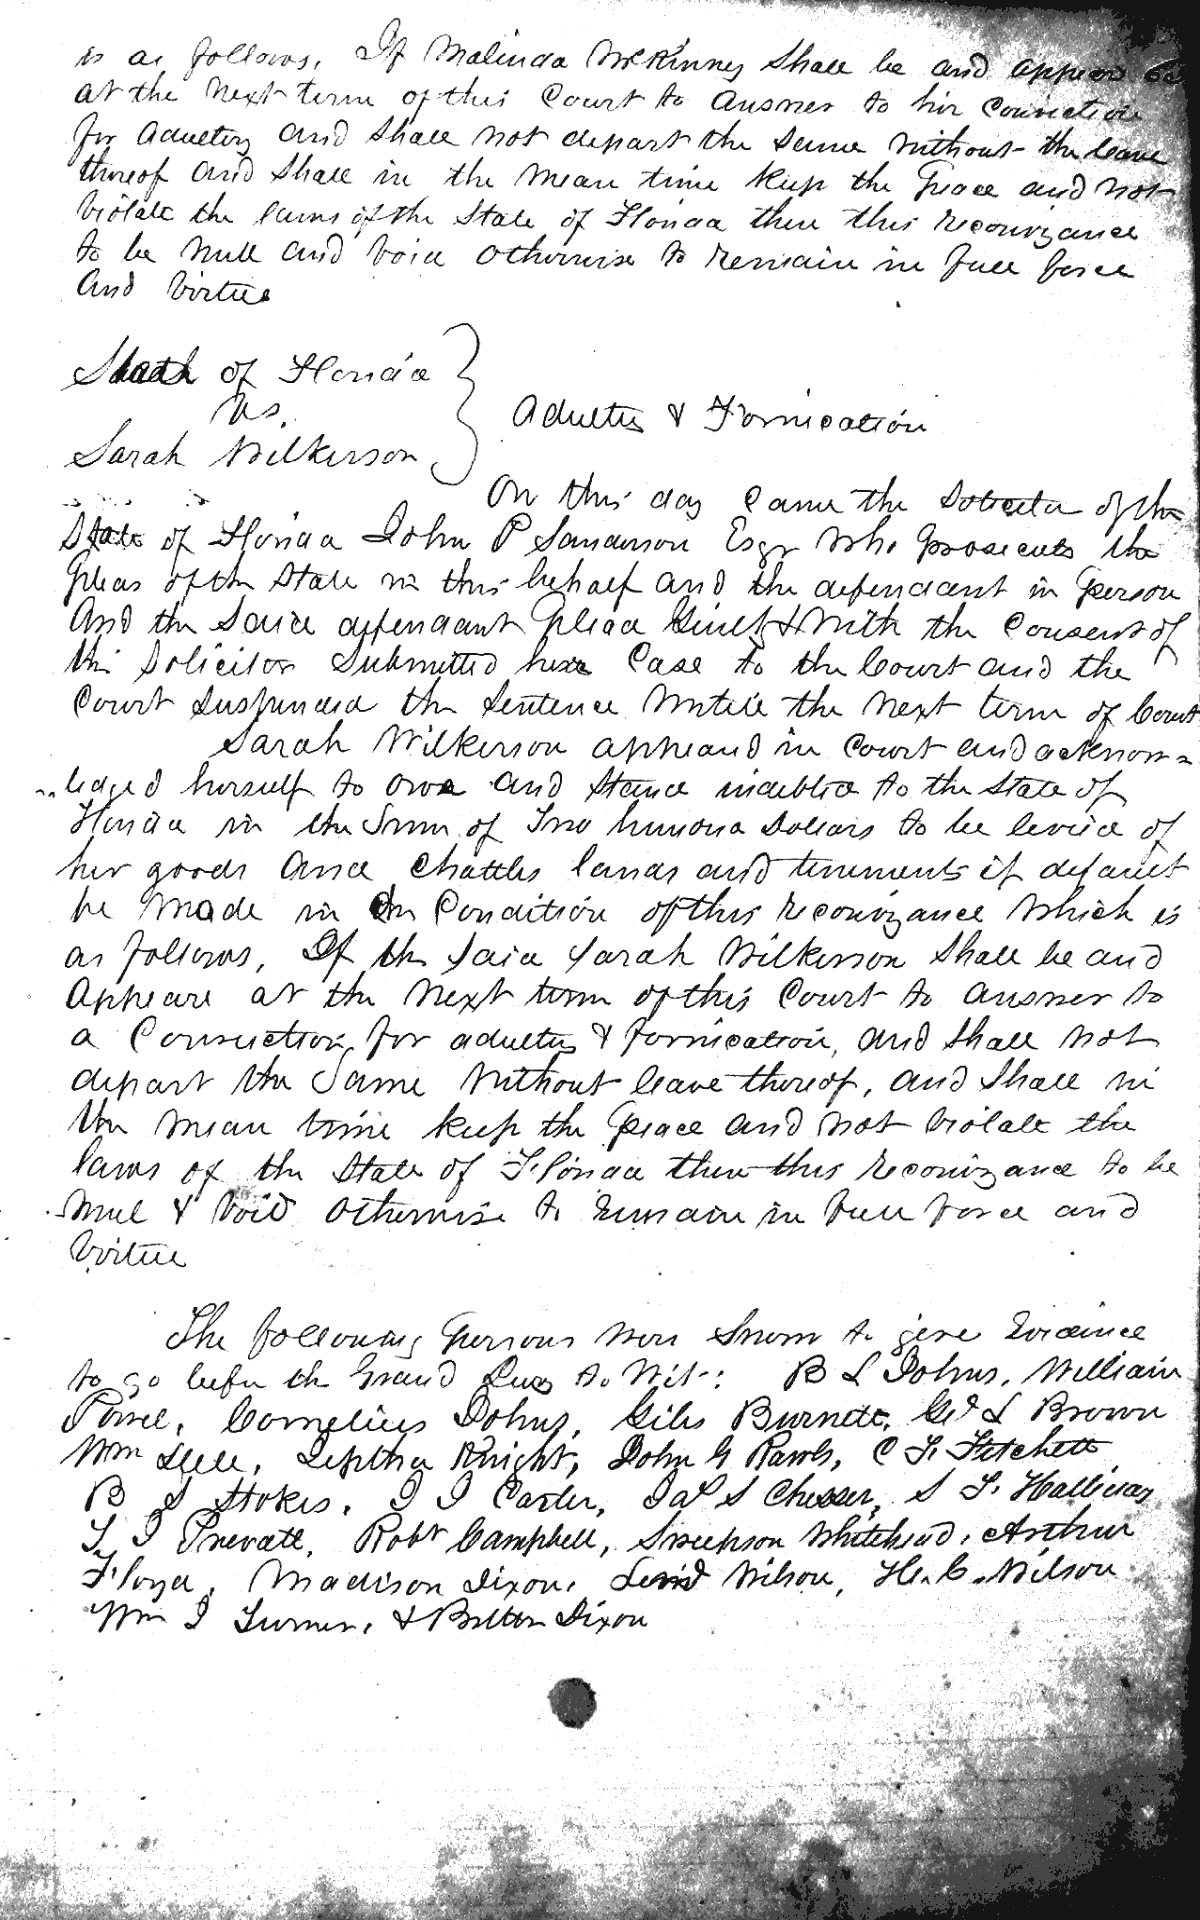 is as follows. If Malinda McKinney Shall be and appear
at the next term of this Court to answer to her Conviction
for adultery and shall not depart the same without the leave
thereof and shall in the mean time keep the Peace and not
violate the laws of the State of Florida then this recognizance
to be null and void otherwise to remain in full force
and virtue
State of Florida
vs.
Sarah Wilkerson
Adultry & Fornication
On this day came the Solicitor of the
State of Florida John P Sanderson Esqr who prosecutes the
Pleas of the State in this behalf and the defendant in Person
And the said defendant Plead Guilty & with the Consent of
the Solicitor Submitted her Case to the Court and the
Court Suspended the Sentence untill the next term of Court
Sarah Wilkerson appeard in Court and acknow=
ledged herself to owe and stand indebted to the State of
Florida in the Sum of Two hundred Dollars to be levied of
her goods and Chattles lands and tenements if default
be made in the Condition of this recognizance which is
as follows. If the said Sarah Wilkerson Shall be and
appeare at the next term of this Court to answer to
a Conviction for adultry & fornication, and shall not
depart the Same without leave thereof, and shall in
the mean time keep the Peace and not violate the
laws of the State of Florida then this recognizance to be
null & void otherwise to remain in full force and
virtue
The following Persons were Sworn to give Evidence
to go before the Grand Jury to Wit: B L Johns, William
Powel, Cornelius Johns, Giles Burnett, Geo L Brown
Wm Dell, Jeptha Knight, John G Rawls, C F Fitchett
B S Stokes, J J Carter, Jas S Chesser, S F. Halliday
T J Prevatt, Robt Campbell, Simpson Whitehead, Arthur
Floyd, Madison Dixon, Wilson, H. C. Wilson
Wm J Turner, & Dixon